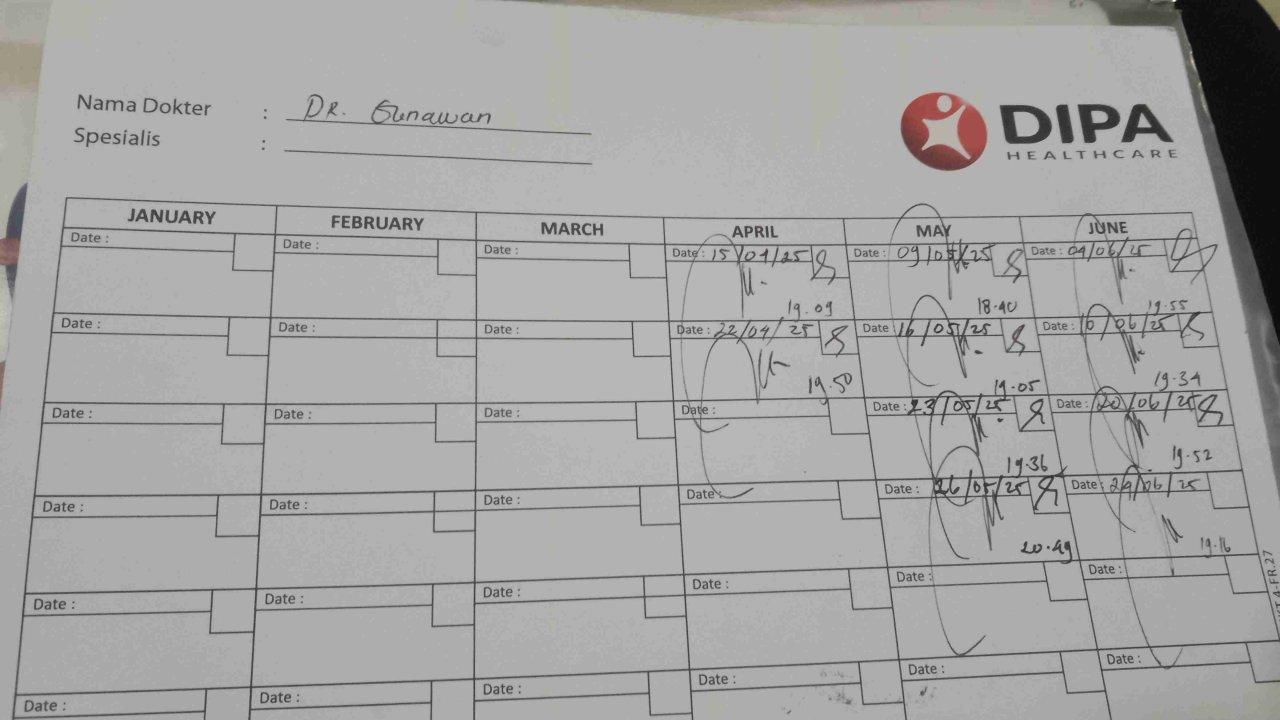 Nama Dokter : DR. Gunawan
Spesialis :
DIPA
HEALTHCARE
JANUARY FEBRUARY MARCH APRIL MAY JUNE
Date : Date : Date : Date : 15/04/25 Date : 09/05/25 Date : 04/06/25
19.09 18.40 19.55
Date : Date : Date : Date : 22/04/25 Date : 16/05/25 Date : 10/06/25
19.50 19.05 19.34
Date : Date : Date : Date : Date : 23/05/25 Date : 20/06/25
19.36 19.52
Date : Date : Date : Date : Date : 26/05/25 Date : 24/06/25
20.49 19.16
Date : Date : Date : Date : Date : Date :
Date : Date : Date : Date : Date : Date :